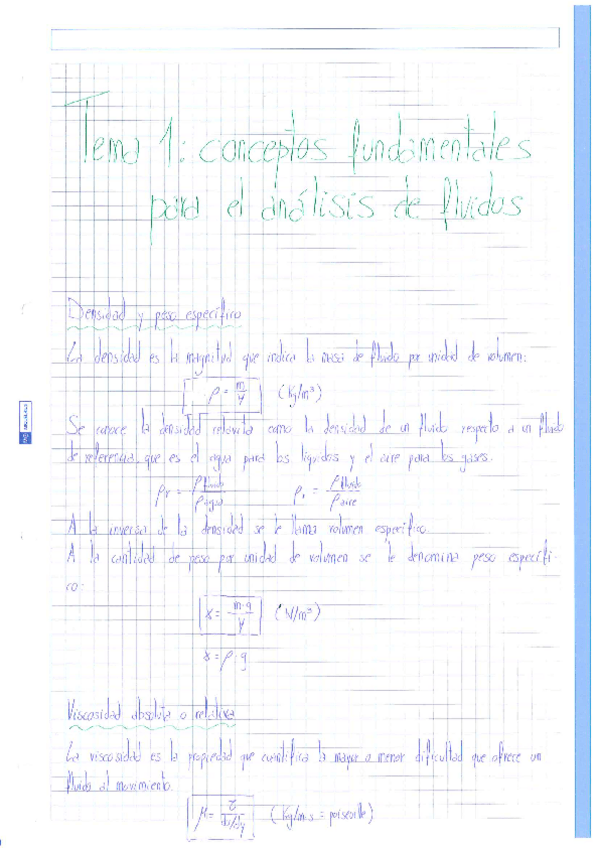 Tema 1: conceptos fundamentales
para el análisis de fluidos
Densidad y peso específico
La densidad es la magnitud que indica la masa de fluido por unidad de volumen:
ρ = m/V (Kg/m³)
Se conoce la densidad relativa como la densidad de un fluido respecto a un fluido
de referencia, que es el agua para los líquidos y el aire para los gases.
ρr = ρfluido/ρagua ρr = ρfluido/ρaire
A la inversa de la densidad se le llama volumen específico.
A la cantidad de peso por unidad de volumen se le denomina peso específi-
co:
γ = m·g/V (N/m³)
γ = ρ·g
Viscosidad absoluta o relativa
La viscosidad es la propiedad que cuantifica la mayor o menor dificultad que ofrece un
fluido al movimiento.
μ = τ/(du/dy) (Kg/m·s = poiseuille)